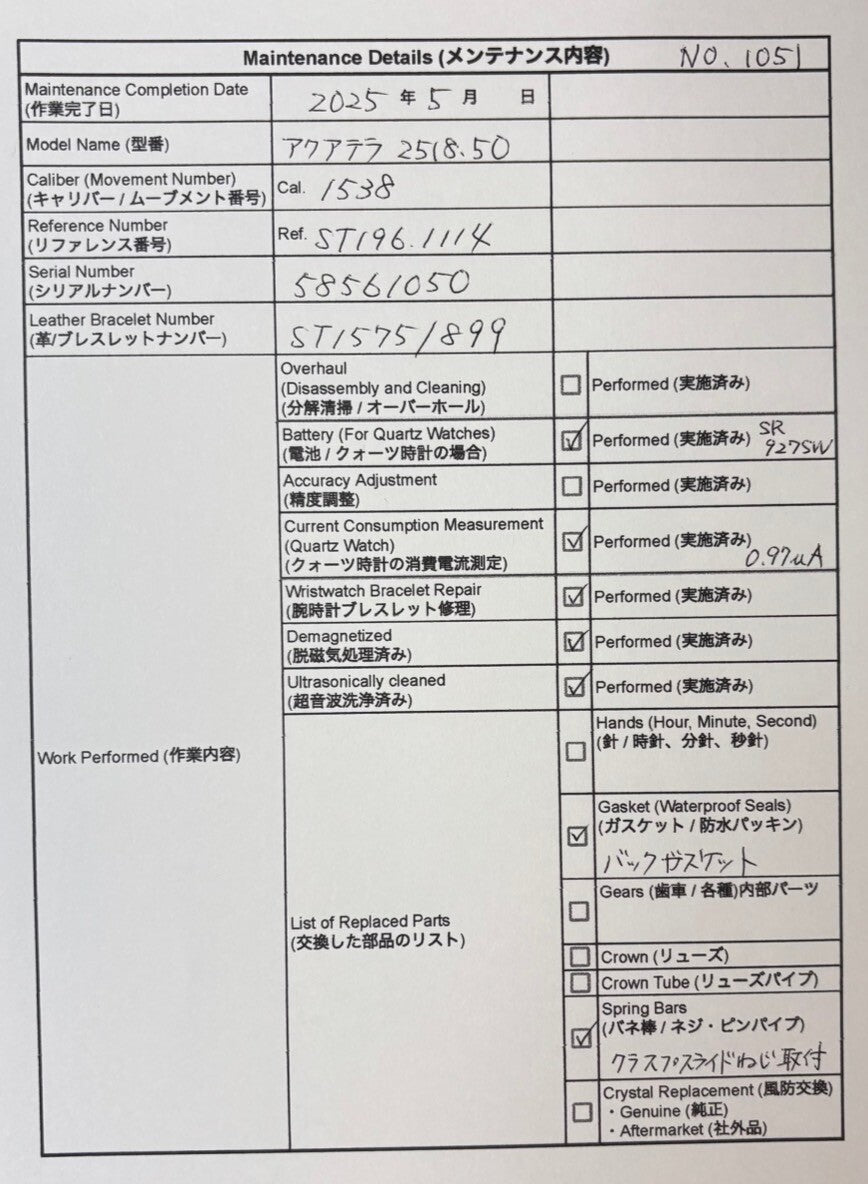 Maintenance Details (メンテナンス内容) NO. 1051
Maintenance Completion Date
(作業完了日)
2025 年 5 月 日
Model Name (型番)
アクアテラ 2518.50
Caliber (Movement Number)
(キャリバー / ムーブメント番号)
Cal. 1538
Reference Number
(リファレンス番号)
Ref. ST196.1114
Serial Number
(シリアルナンバー)
58561050
Leather Bracelet Number
(革/ブレスレットナンバー)
ST1575/899
Work Performed (作業内容)
Overhaul
(Disassembly and Cleaning)
(分解清掃 / オーバーホール)
Performed (実施済み)
Battery (For Quartz Watches)
(電池 / クォーツ時計の場合)
Performed (実施済み) SR
927SW
Accuracy Adjustment
(精度調整)
Performed (実施済み)
Current Consumption Measurement
(Quartz Watch)
(クォーツ時計の消費電流測定)
Performed (実施済み)
0.97uA
Wristwatch Bracelet Repair
(腕時計ブレスレット修理)
Performed (実施済み)
Demagnetized
(脱磁気処理済み)
Performed (実施済み)
Ultrasonically cleaned
(超音波洗浄済み)
Performed (実施済み)
List of Replaced Parts
(交換した部品のリスト)
Hands (Hour, Minute, Second)
(針 / 時針、分針、秒針)
Gasket (Waterproof Seals)
(ガスケット / 防水パッキン)
バックガスケット
Gears (歯車 / 各種)内部パーツ
Crown (リューズ)
Crown Tube (リューズパイプ)
Spring Bars
(バネ棒 / ネジ・ピンパイプ)
クラスプスライドねじ取付
Crystal Replacement (風防交換)
・Genuine (純正)
・Aftermarket (社外品)